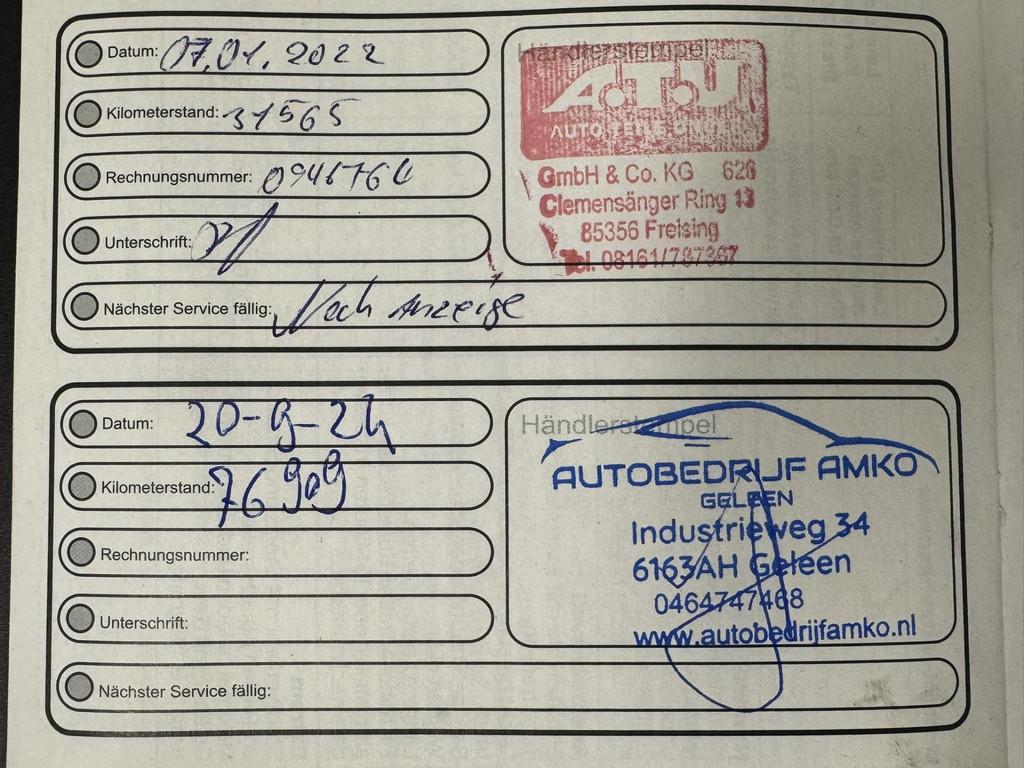 Datum: 07.01.2022
Kilometerstand: 31565
Rechnungsnummer:
Unterschrift:
Nächster Service fällig: Nach Anzeige
Händlerstempel
A.T.U
AUTO TEILE UNGER
GmbH & Co. KG 626
Clemensänger Ring 13
85356 Freising
Tel. 08161/787367
Datum: 20-9-24
Kilometerstand: 76909
Rechnungsnummer:
Unterschrift:
Nächster Service fällig:
Händlerstempel
AUTOBEDRIJF AMKO
GELEEN
Industrieweg 34
6163AH Geleen
0464747468
www.autobedrijfamko.nl